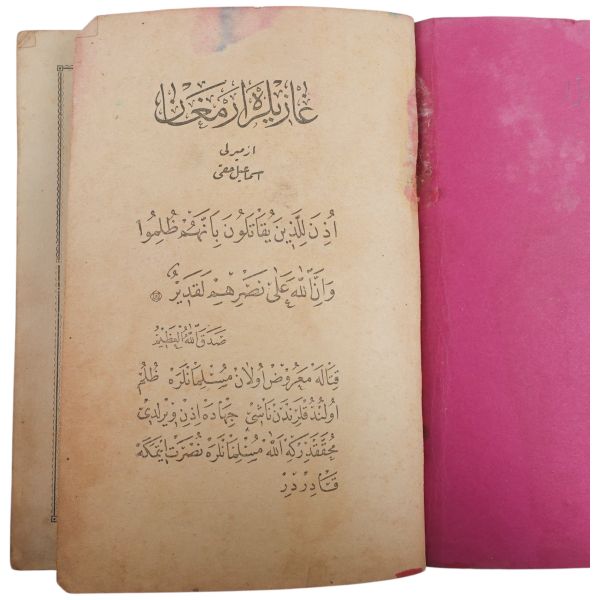 غازیلره ارمغان
ازمیرلی
اسماعیل حقی
اُذِنَ لِلَّذِينَ يُقَاتَلُونَ بِاَنَّهُمْ ظُلِمُوا
وَاِنَّ اللّٰهَ عَلٰى نَصْرِهِمْ لَقَدِيرٌ
صَدَقَ اللّٰهُ الْعَظِيمُ
قِتَالَه مَعْرُوضْ اُولَانْ مُسْلِمَانْلَرَه ظُلْمْ
اُولُنْدُقْلَرِنْدَنْ نَاشِی جِهَادَه اِذِنْ وِیرِلْدِی
مُحَقَّقْدِرْکِه اَللّٰهْ مُسْلِمَانْلَرَه نُصْرَتْ اِیتْمَکَه
قَادِرْدِرْ